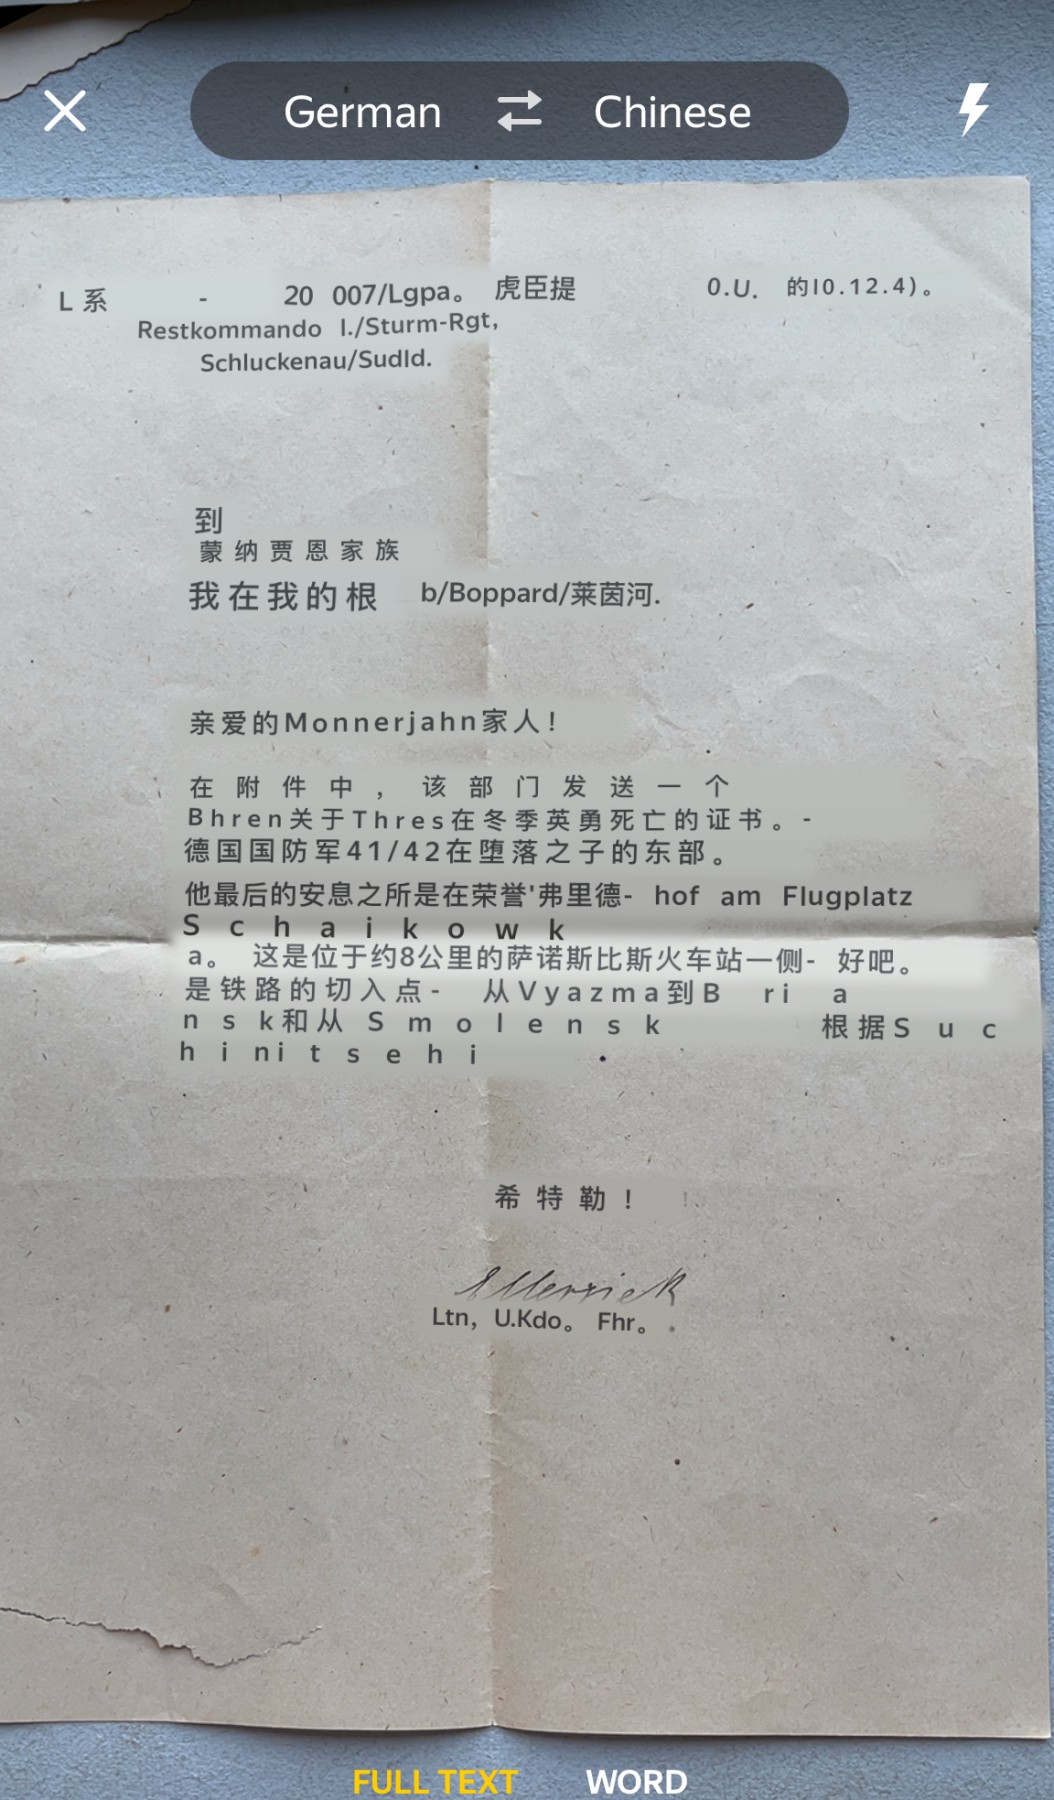 German Chinese
L系 - 20 007/Lgpa。 虎臣提 O.U. 的I0.12.4)。
Restkommando I./Sturm-Rgt,
Schluckenau/Sudld.
到
蒙纳贾恩家族
我在我的根 b/Boppard/莱茵河.
亲爱的Monnerjahn家人!
在附件中,该部门发送一个
Bhren关于Thres在冬季英勇死亡的证书。-
德国国防军41/42在堕落之子的东部。
他最后的安息之所是在荣誉'弗里德- hof am Flugplatz
Schaikowk
a。 这是位于约8公里的萨诺斯比斯火车站一侧- 好吧。
是铁路的切入点- 从Vyazma到B ri a
nsk和从Smolensk 根据Suc
hinitsehi
希特勒!
Ellerrieck
Ltn, U.Kdo。 Fhr。
FULL TEXT WORD